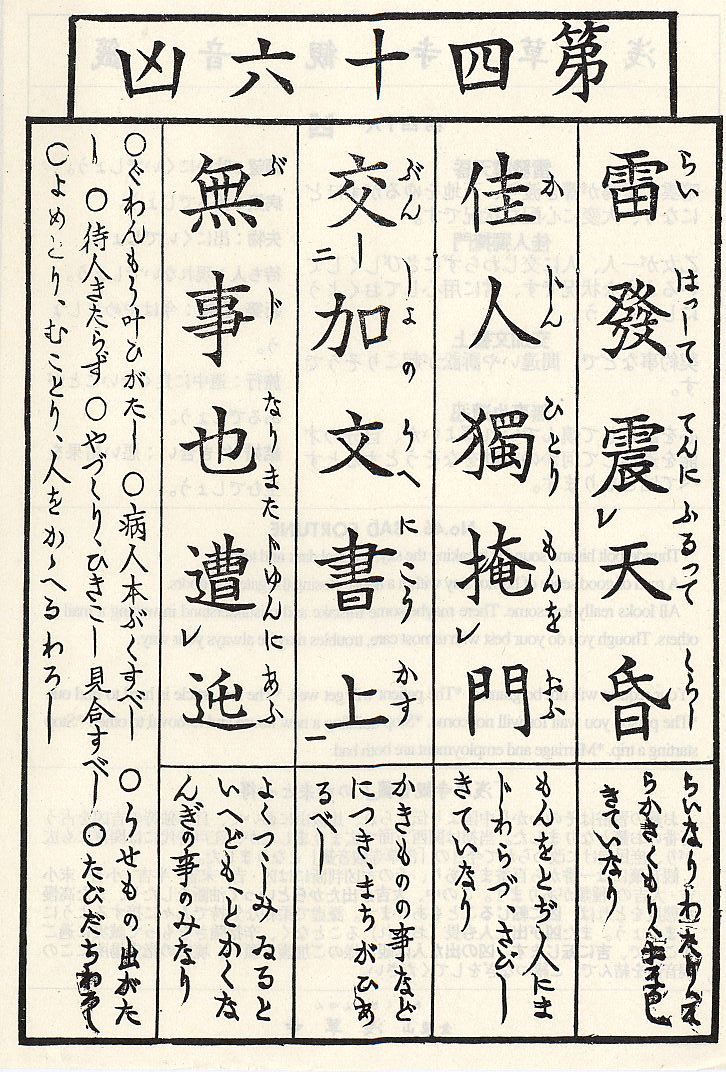 第四十六凶
雷發震レ天昏
らい はつして てんに ふるつて くらし
らいなりわたりそ
らかきくもり
きていなり
佳人獨掩レ門
か じん ひとり もんを おふ
もんをとぢ人にま
じわらづさびし
きていなり
交二加文書上一
ぶん しよの うへ に こう かす
かきものの事など
につきまちがひあ
るべし
無事也遭レ迍
ぶ じ なりまた じゆんに あふ
よくつゝしみゐると
いへどもとかくな
んぎの事のみなり
○ぐわんもう叶ひがたし ○病人本ぶくすべし ○うせもの出がた
し ○侍人きたらず ○やづくり、ひきこし見合すべし ○たびだちわるし
○よめとり、むことり、人をかゝへるわろし